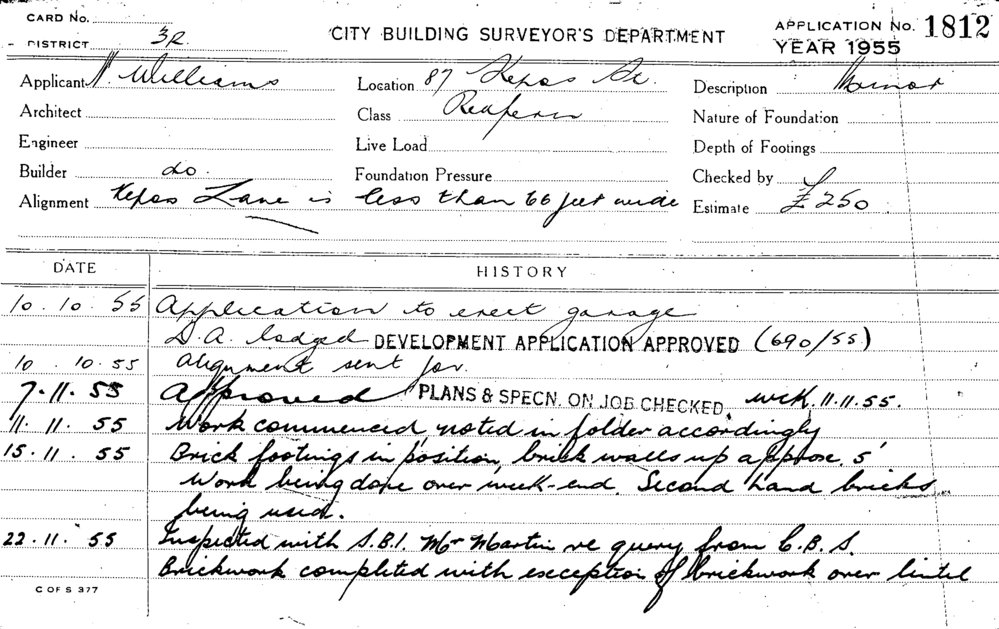 CARD No.
CITY BUILDING SURVEYOR'S DEPARTMENT
APPLICATION No. 1812
DISTRICT 3R
YEAR 1955
Applicant N. Williams Location 87 Kepos St. Description Minor
Architect Class Redfern Nature of Foundation
Engineer Live Load Depth of Footings
Builder do. Foundation Pressure Checked by
Alignment Kepos Lane is less than 66 feet wide Estimate £250
DATE HISTORY
10. 10. 55 Application to erect garage
D.A. lodged DEVELOPMENT APPLICATION APPROVED (690/55)
10 10.55 alignment sent for.
7.11.55 Approved PLANS & SPECN. ON JOB CHECKED. 11.11.55.
11. 11. 55 Work commenced, noted in folder accordingly
15.11. 55 Brick footings in position, brick walls up approx. 5'
Work being done over week-end. Second hand bricks
being used.
22.11. 55 Inspected with S.B.I. Mr Martin re query from C.B.S.
Brickwork completed with exception of brickwork over lintel
C OF S 377